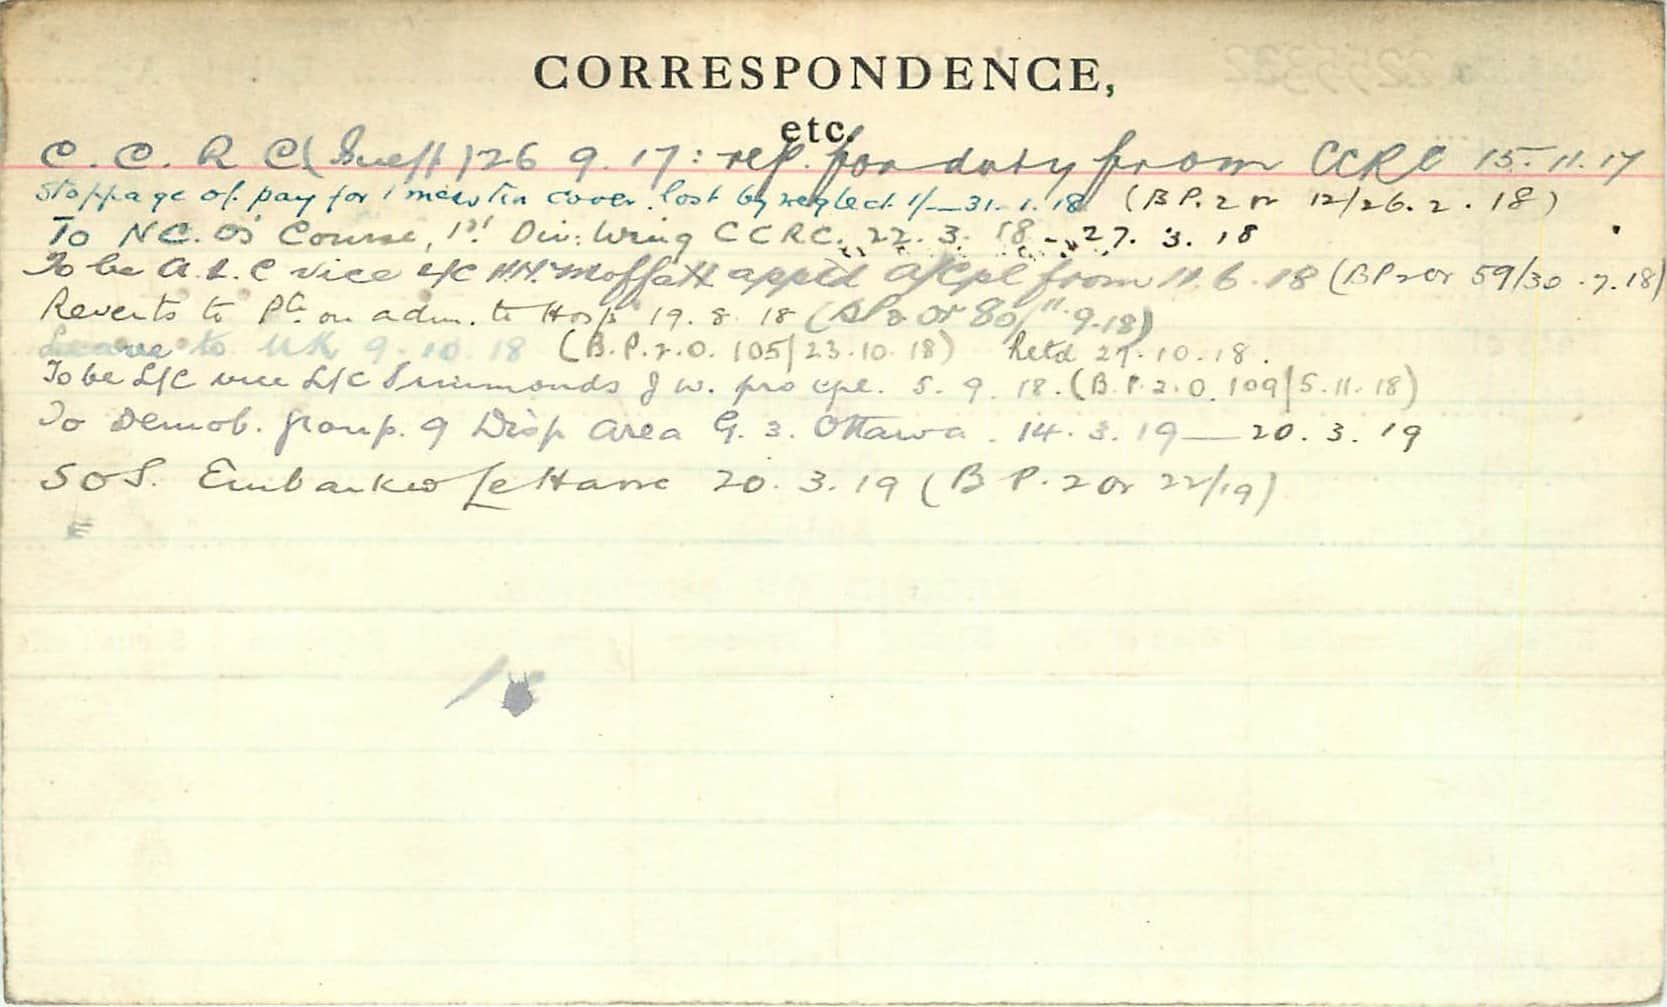 CORRESPONDENCE,
etc.
C. C. R C ( ) 26 9. 17: rep. for duty from CCRC 15.11.17
Stoppage of pay for 1 mess tin cover lost by neglect 1/—31.1.18 (B P. 2 Or 12/26.2.18)
To N.C.Os Course, 1st Div: Wing CCRC. 22.3.18 - 27.3.18
To be A.L.C vice L/C Moffatt appt'd A/Cpl from 11.6.18 (BP2Or 59/30.7.18)
Reverts to Pte. on adm. to Hosp 19.8.18 (BP2 Or 80/11.9.18)
Leave to UK 9.10.18 (B.P.2.O. 105/23.10.18) Retd 27.10.18.
To be L/C vice L/C Drummonds J W. pro cpl. 5.9.18. (B.P.2.O. 109/5.11.18)
To Demob. Group. 9 Disp Area G. 3. Ottawa. 14.3.19—20.3.19
SOS. Embarked Le Havre 20.3.19 (B P. 2 Or 22/19)